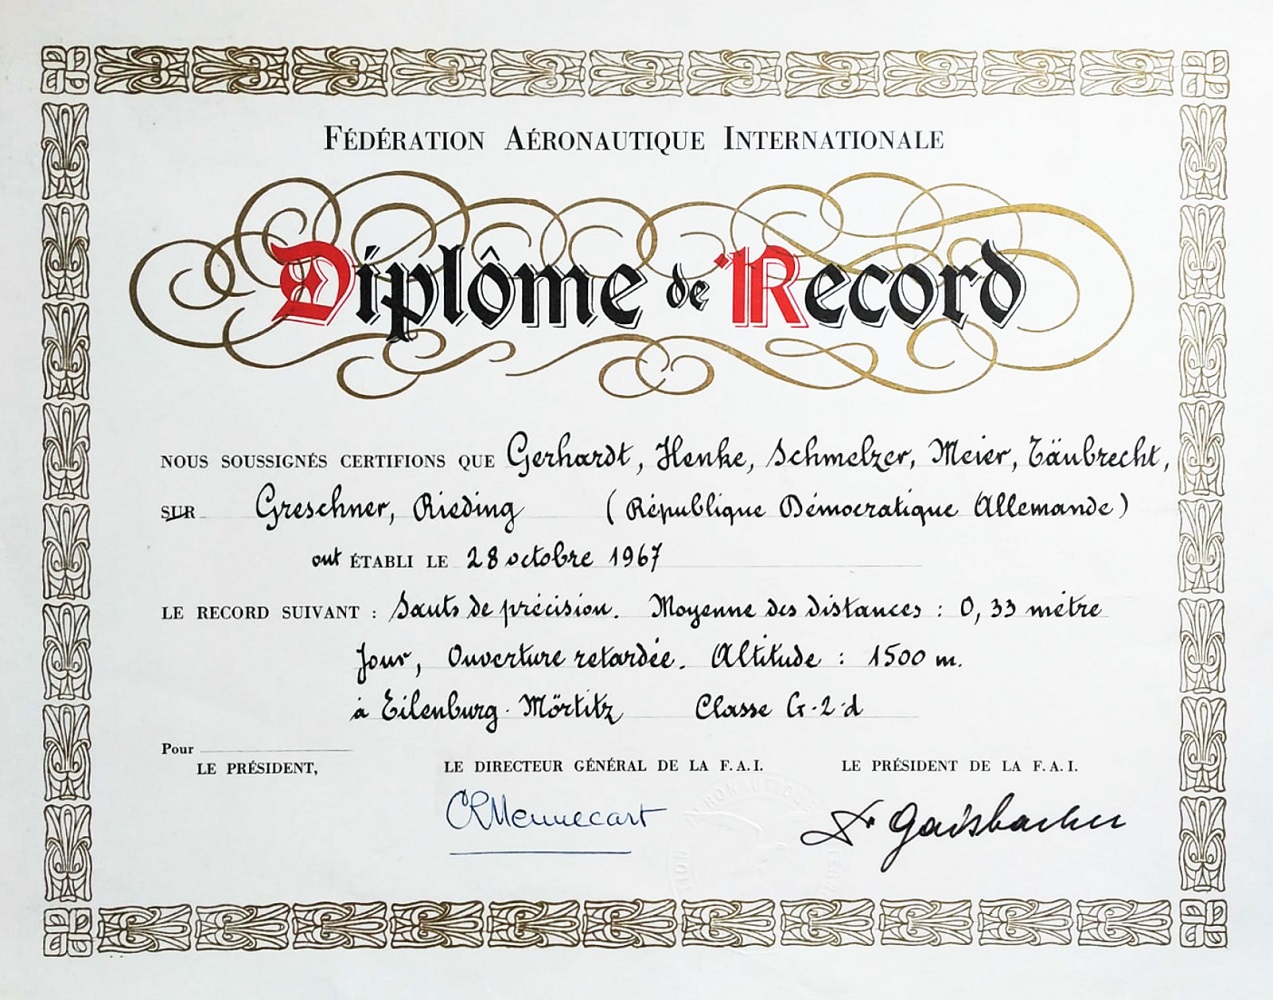 FÉDÉRATION AÉRONAUTIQUE INTERNATIONALE
Diplôme de Record
NOUS SOUSSIGNÉS CERTIFIONS QUE Gerhardt, Henke, Schmelzer, Meier, Täubrecht,
SUR Greschner, Rieding (République Démocratique Allemande)
ont ÉTABLI LE 28 octobre 1967
LE RECORD SUIVANT : Sauts de précision. Moyenne des distances : 0,33 mètre
Jour, Ouverture retardée. Altitude : 1500 m.
à Eilenburg-Mörtitz Classe G-2-d
Pour
LE PRÉSIDENT, LE DIRECTEUR GÉNÉRAL DE LA F.A.I. LE PRÉSIDENT DE LA F.A.I.
CRMennecart